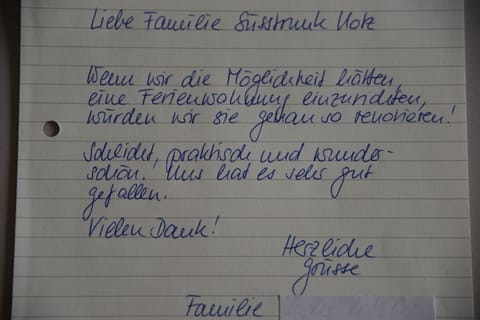 Liebe Familie Süsstrunk Hotz
Wenn wir die Möglichkeit hätten,
eine Ferienwohnung einzurichten,
würden wir sie genau so renovieren!
Schlicht, praktisch und wunder-
schön. Uns hat es sehr gut
gefallen.
Vielen Dank!
Herzliche
Grüsse
Familie